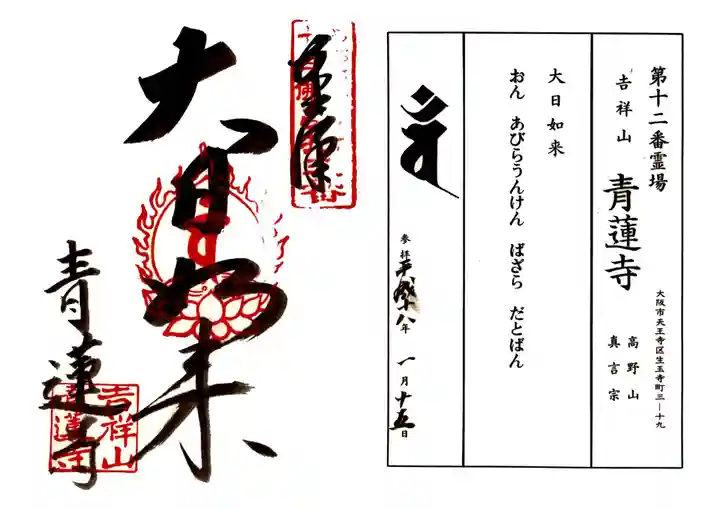 第十二番霊場
吉祥山 青蓮寺
高野山
真言宗
大阪市天王寺区生玉寺町三―十九
大日如来
おん あびらうんけん ばざら だとばん
参拝 平成十八年 一月十五日
大日如来
青蓮寺
吉祥山
青蓮寺